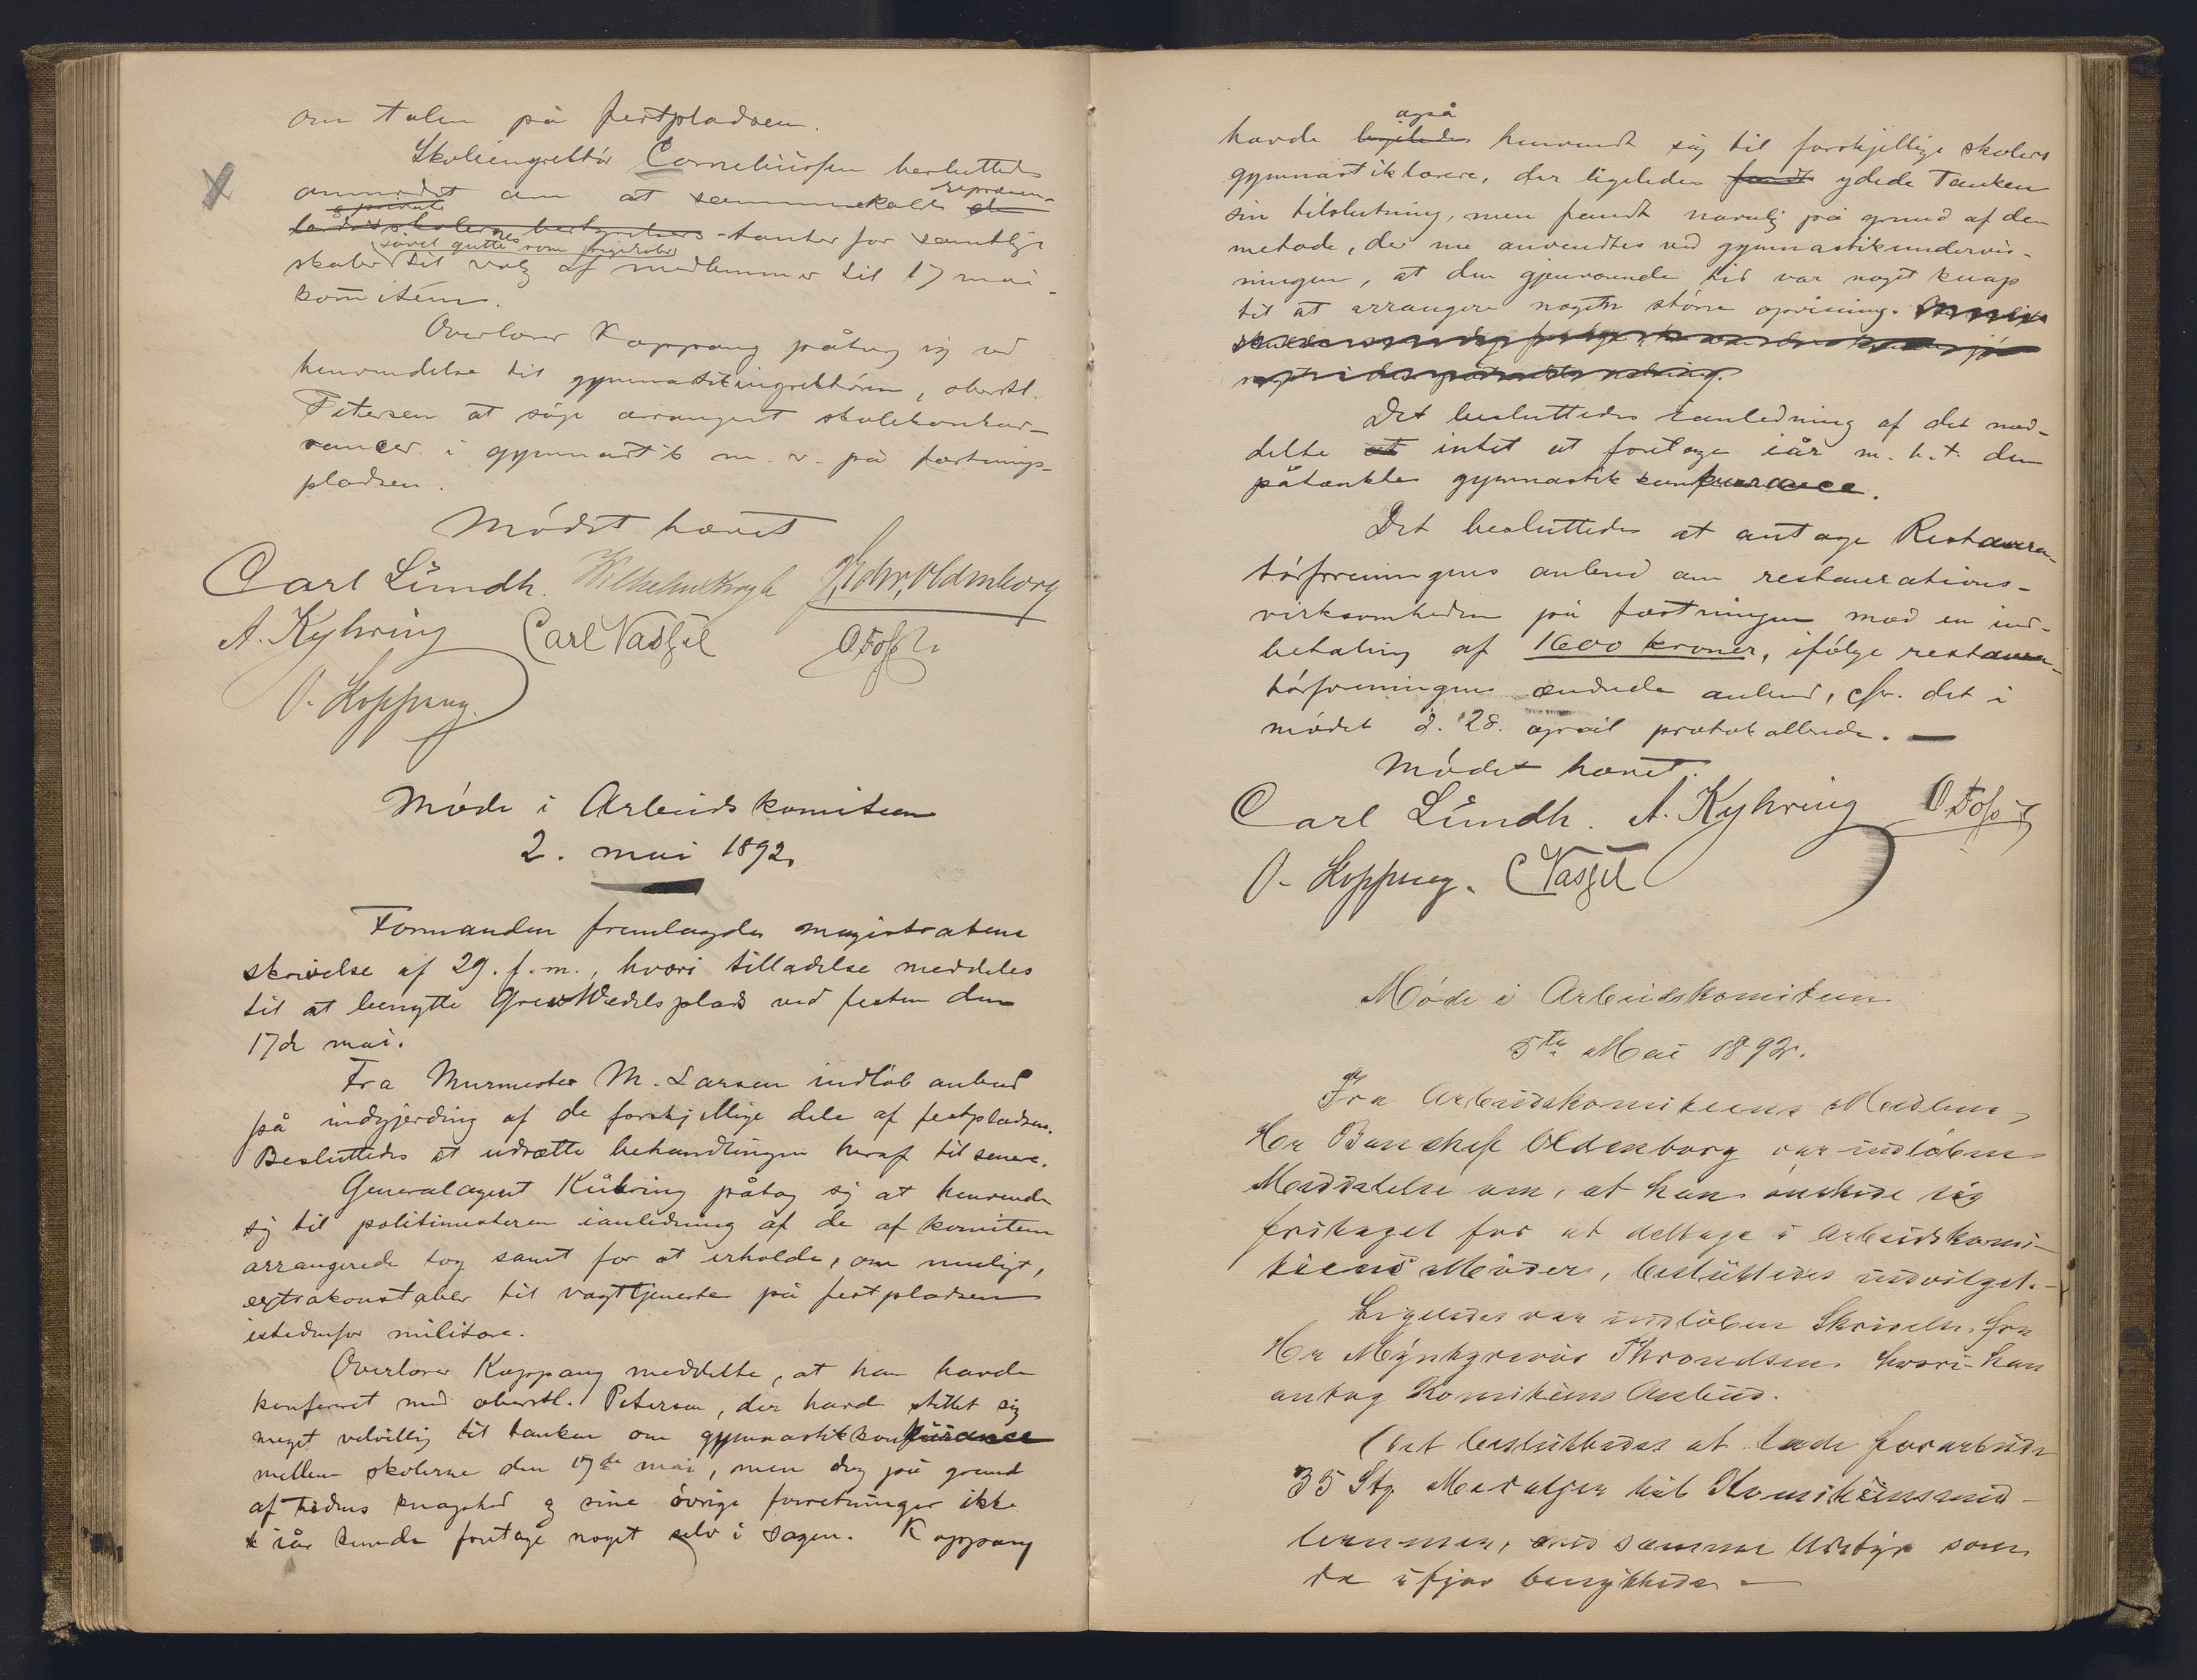 om talen på festpladsen.
Skoleinspektør Corneliussen besluttedes
anmodet om at sammenkalde de repræsen-
tanter for samtlige
skoler (såvel gutte som pigeskoler) til valg af medlemmer til 17 mai-
komitéen.
Overlærer Koppang påtog sig ved
henvendelse til gymnastikinspektøren, oberstl.
Petersen at søge arrangert skolekonkur-
rancer i gymnastik m. v. på fæstnings-
pladsen.
Mødet hævet
Carl Lundh. Wilhelm Krogh J. Schr. Oldenborg
A. Kyhring Carl Nassel O. Foss
O. Koppang.
Møde i Arbeidskomiteen
2. mai 1892.
Formanden fremlagde magistratens
skrivelse af 29. f. m., hvori tilladelse meddeles
til at benytte Grev Wedels plads ved festen den
17de mai.
Fra Murmester M. Larsen indløb anbud
på indgjerding af de forskjellige dele af festpladsen.
Besluttedes at udsætte behandlingen heraf til senere.
Generalagent Kühring påtog sig at henvende
sig til politimesteren ianledning af de af komiteen
arrangerede tog samt for at erholde, om muligt,
extrakonstabler til vagttjeneste på festpladsen
istedenfor militære.
Overlærer Koppang meddelte, at han havde
konfereret med oberstl. Petersen, der havde stillet sig
meget velvillig til tanken om gymnastikkonkurance
mellem skolerne den 17de mai, men dog på grund
af tidens knaphed og sine øvrige forretninger ikke
iår kunde foretage noget selv i sagen. Koppang
havde ligeledes også henvendt sig til forskjellige skolers
gymnastiklærere, der ligeledes fandt ydede Tanken
sin tilslutning, men fandt navnlig på grund af den
metode, der nu anvendtes ved gymnastikundervis-
ningen, at den gjenværende tid var noget knap
til at arrangere nogen større opvisning.
Det besluttedes ianledning af det med-
delte at intet at foretage iår m. h. t. den
påtænkte gymnastikkonkurance.
Det besluttedes at antage Restaura-
tørforeningens anbud om restaurations-
virksomheden på fæstningen mod en ind-
betaling af 1600 kroner, ifølge restaura-
tørforeningens ændrede anbud, cfr. det i
mødet d. 28. april protokollerede. —
Mødet hævet.
Carl Lundh. A. Kyhring O. Foss
O. Koppang. C Nassel
Møde i Arbeidskomiteen
5te Mai 1892.
Fra Arbeidskomiteens Medlem,
Hr Banchef Oldenborg var indløben
Meddelelse om, at han ønskede sig
fritaget for at deltage i Arbeidskomi-
teens Møder, besluttedes indvilget. —
Ligeledes var indløben Skrivelse fra
Hr Myntgravør Throndsen hvori han
antog Komiteens Anbud.
Det besluttedes at lade forarbeide
35 Stg. Medaljer til Komiteensmed-
lemmer, med samme Udstyr som
de ifjor benyttede —